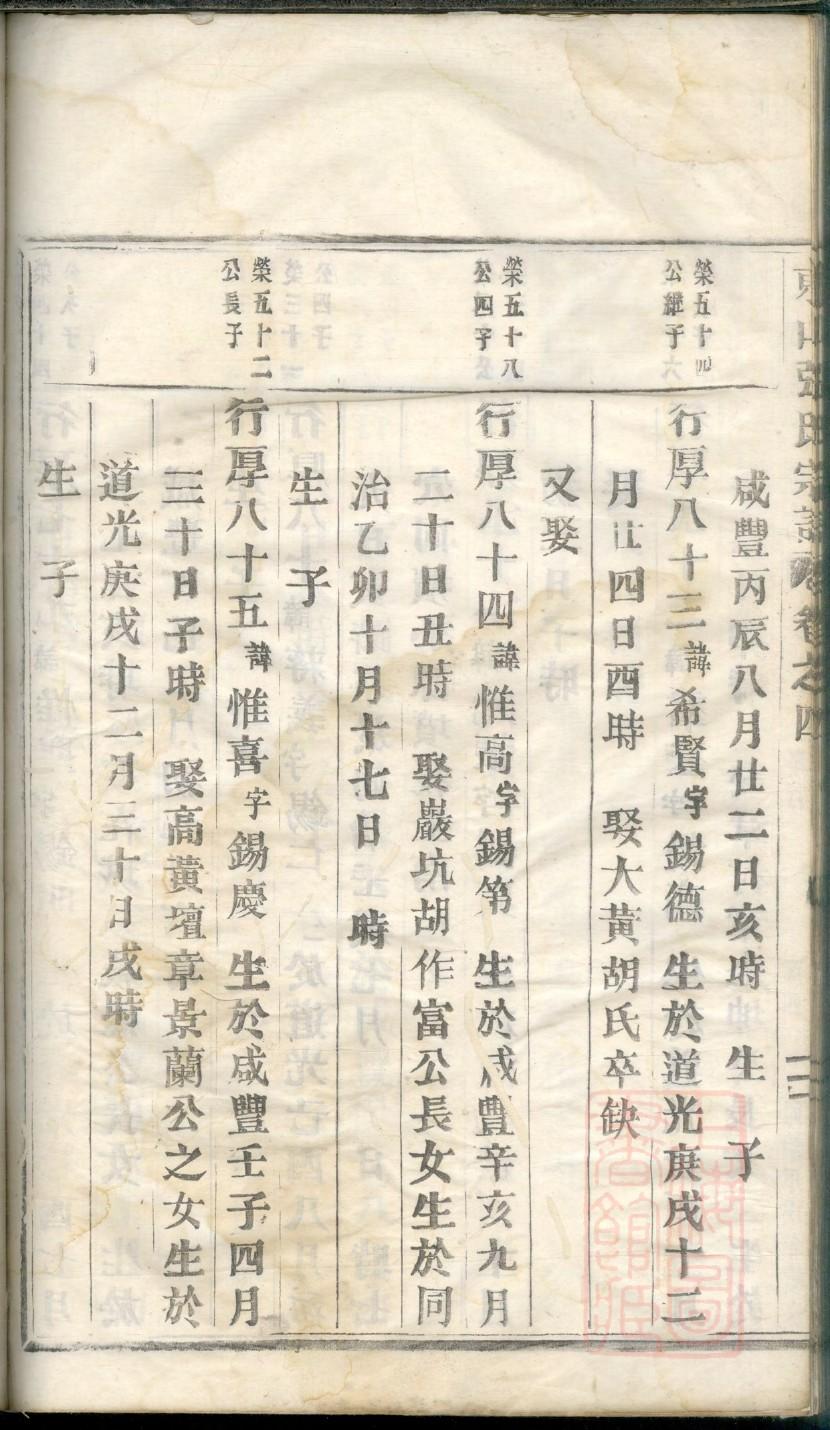 東山張氏宗譜卷之四
咸豐丙辰八月廿二日亥時 生 子
榮五十四
公繼子
行厚八十三諱希賢字錫德 生於道光庚戌十二
月廿四日酉時 娶大黃胡氏卒缺
又娶
榮五十八
公四子
行厚八十四諱惟高字錫第 生於咸豐辛亥九月
二十日丑時 娶巖坑胡作富公長女生於同
治乙卯十月十七日 時
生 子
榮五十二
公長子
行厚八十五諱惟喜字錫慶 生於咸豐壬子四月
三十日子時 娶高黃壇章景蘭公之女生於
道光庚戌十二月三十日戌時
生 子